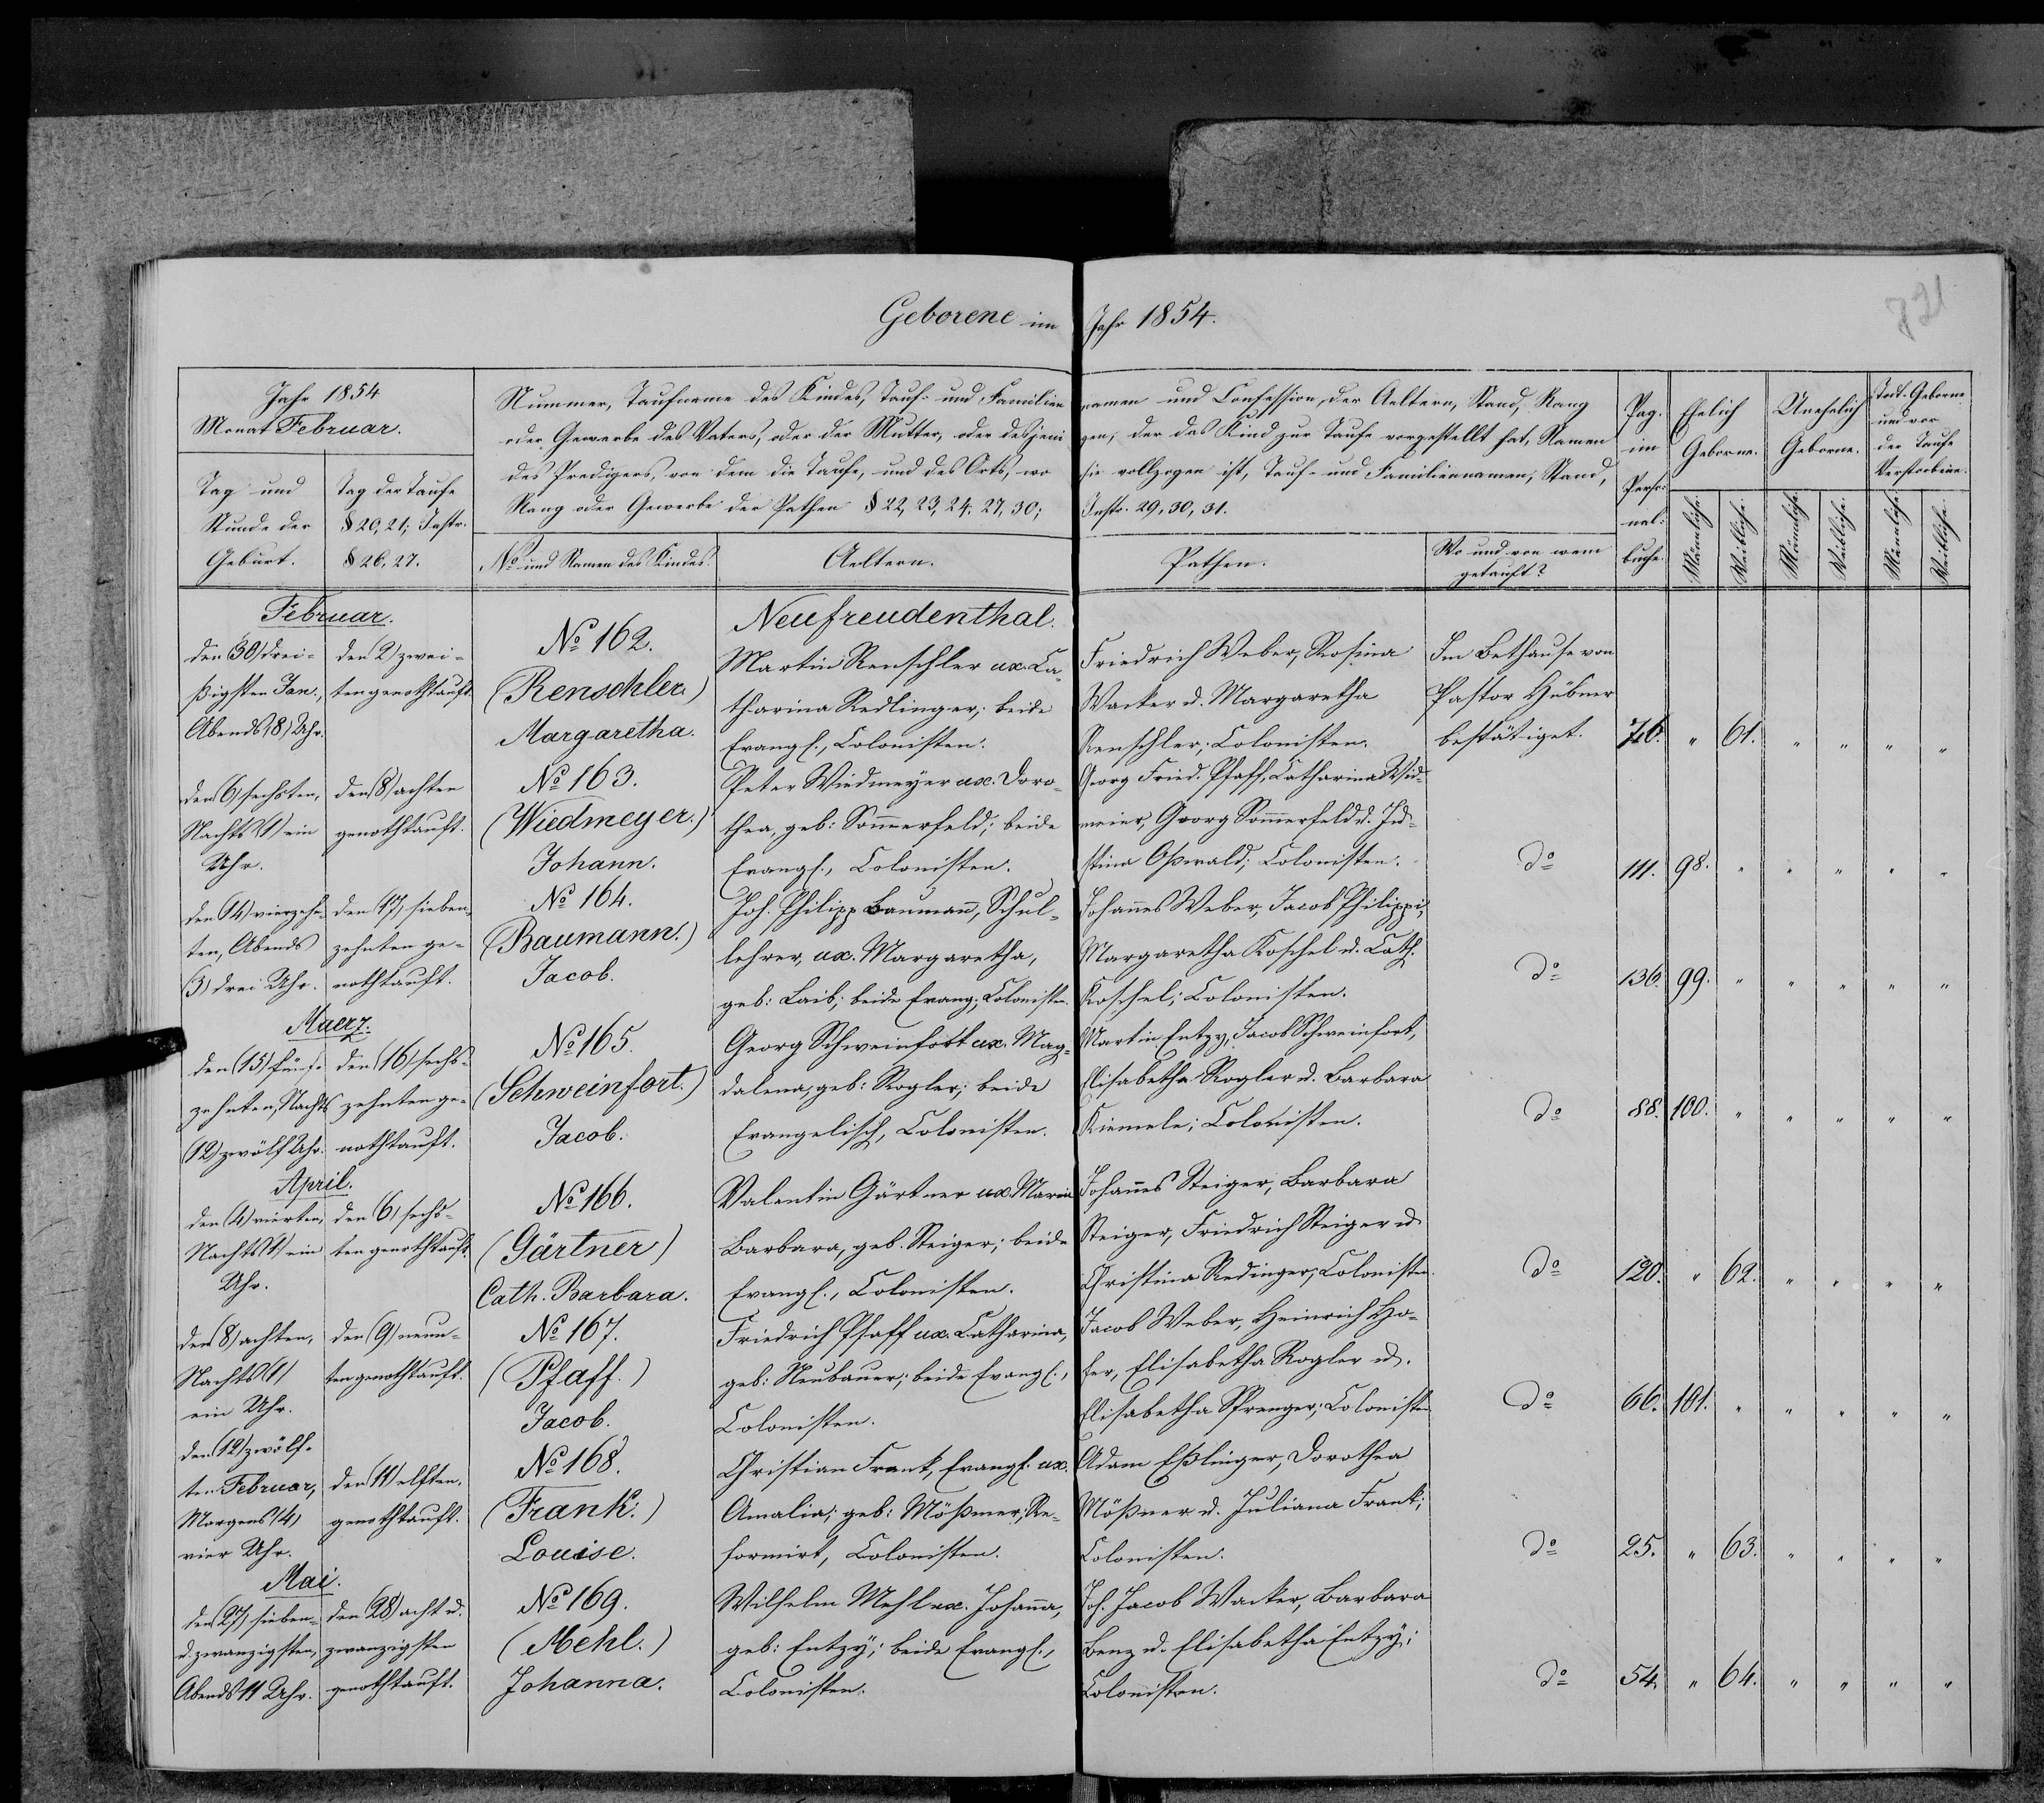 Geborene im Jahr 1854.
721
Jahr 1854
Monat Februar.
Tag und
Stunde der
Geburt.
Tag der Taufe
§ 20, 21; Instr.
§ 26, 27.
Nummer, Taufname des Kindes, Tauf- und Familien
namen und Confession, der Aeltern, Stand, Rang
oder Gewerbe des Vaters, oder der Mutter, oder desjeni
gen, der das Kind zur Taufe vorgestellt hat, Namen
des Predigers, von dem die Taufe, und des Orts, wo
sie vollzogen ist, Tauf- und Familiennamen, Stand,
Rang oder Gewerbe der Pathen § 22, 23, 24, 27, 30;
Instr. 29, 30, 31.
No und Namen des Kindes.
Aeltern.
Pathen.
Wo und von wem
getauft?
Pag.
im
Perso-
nal-
buche.
Ehelich
Geborne.
Unehelich
Geborne.
Todt-Geborne
und vor
der Taufe
Verstorbene.
Männliche.
Weibliche.
Männliche.
Weibliche.
Männliche.
Weibliche.
Februar.
Neufreudenthal.
den (30) drei-
ßigsten Jan.,
Abends (8) Uhr.
den (2) zwei-
ten genothtauft.
No 162.
(Renschler.)
Margaretha.
Martin Renschler ux. Ca-
tharina Redlinger; beide
Evangl., Colonisten.
Friedrich Weber, Rosina
Wacker u. Margaretha
Renschler; Colonisten.
Im Bethause von
Pastor Hübner
bestätiget.
76. " 61. " " " "
den (6) sechsten,
Nachts (1) ein
Uhr.
den (8) achten
genothtauft.
No 163.
(Wiedmeyer.)
Johann.
Peter Wiedmeyer ux. Doro-
thea, geb: Sommerfeld; beide
Evangl., Colonisten.
Georg Fried. Pfaff, Catharina Wid-
meier, Georg Sommerfeld u. Ju-
stina Oßwald; Colonisten.
do 111. 98. " " " " "
den (14) vierzehn-
ten, Abends
(3) drei Uhr.
den (17) sieben-
zehnten ge-
nothtauft.
No 164.
(Baumann.)
Jacob.
Joh. Philipp Baumann, Schul-
lehrer, ux. Margaretha,
geb: Laib; beide Evang; Colonisten.
Johannes Weber, Jacob Philippi,
Margaretha Koschel u. Cath.
Koschel; Colonisten.
do 136. 99. " " " " "
Maerz.
den (15) fünf-
zehnten, Nachts
(12) zwölf Uhr.
den (16) sechs-
zehnten ge-
nothtauft.
No 165.
(Schweinfort.)
Jacob.
Georg Schweinfort ux. Mag-
dalena, geb: Rogler; beide
Evangelisch, Colonisten.
Martin Entzy, Jacob Schweinfort,
Elisabetha Rogler u. Barbara
Kiemele; Colonisten.
do 88. 100. " " " " "
April.
den (4) vierten,
Nachts (1) ein
Uhr.
den (6) sechs-
ten genothtauft.
No 166.
(Gärtner)
Cath. Barbara.
Valentin Gärtner ux. Maria
Barbara, geb. Steiger; beide
Evangl., Colonisten.
Johannes Steiger, Barbara
Steiger, Friedrich Steiger u.
Christina Redinger; Colonisten.
do 120. " 62. " " " "
den (8) achten,
Nachts (1)
ein Uhr.
den (9) neun-
ten genothtauft.
No 167.
(Pfaff.)
Jacob.
Friedrich Pfaff ux. Catharina,
geb: Neubauer; beide Evangl.,
Colonisten.
Jacob Weber, Heinrich Ho-
fer, Elisabetha Rogler u.
Elisabetha Sprenger; Colonisten
do 66. 101. " " " " "
den (12) zwölf-
ten Februar,
Morgens (4)
vier Uhr.
den (11) elften.
genothtauft.
No 168.
(Frank.)
Louise.
Christian Frank, Evangl. ux.
Amalia; geb: Mößmer; Re-
formirt, Colonisten.
Adam Eßlinger, Dorothea
Mößner u. Juliana Frank;
Colonisten.
do 25. " 63. " " " "
Mai.
den (27) sieben-
u. zwanzigsten,
Abends 11 Uhr.
den (28) acht u.
zwanzigsten
genothtauft.
No 169.
(Mehl.)
Johanna.
Wilhelm Mehl ux. Johanna,
geb: Entzy; beide Evangl.,
Colonisten.
Joh. Jacob Wacker, Barbara
Benz u. Elisabetha Entzy;
Colonisten.
do 54. " 64. " " " "